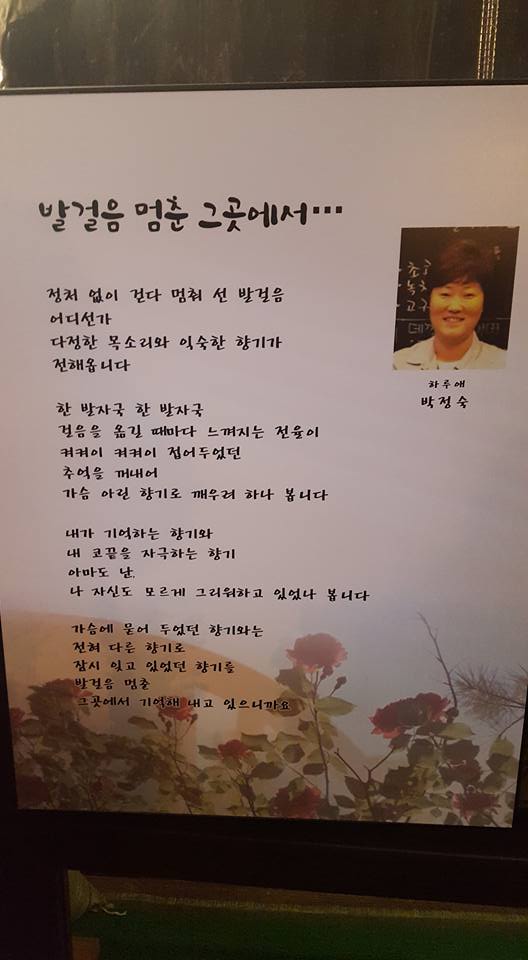 발걸음 멈춘 그곳에서...
정처 없이 걷다 멈춰 선 발걸음
어디선가
다정한 목소리와 익숙한 향기가
전해옵니다
한 발자국 한 발자국
걸음을 옮길 때마다 느껴지는 전율이
켜켜이 켜켜이 접어두었던
추억을 꺼내어
가슴 아린 향기로 깨우려 하나 봅니다
내가 기억하는 향기와
내 코끝을 자극하는 향기
아마도 난,
나 자신도 모르게 그리워하고 있었나 봅니다
가슴에 묻어 두었던 향기와는
전혀 다른 향기로
잠시 잊고 있었던 향기를
발걸음 멈춘
그곳에서 기억해 내고 있으니까요
하루애
박정숙